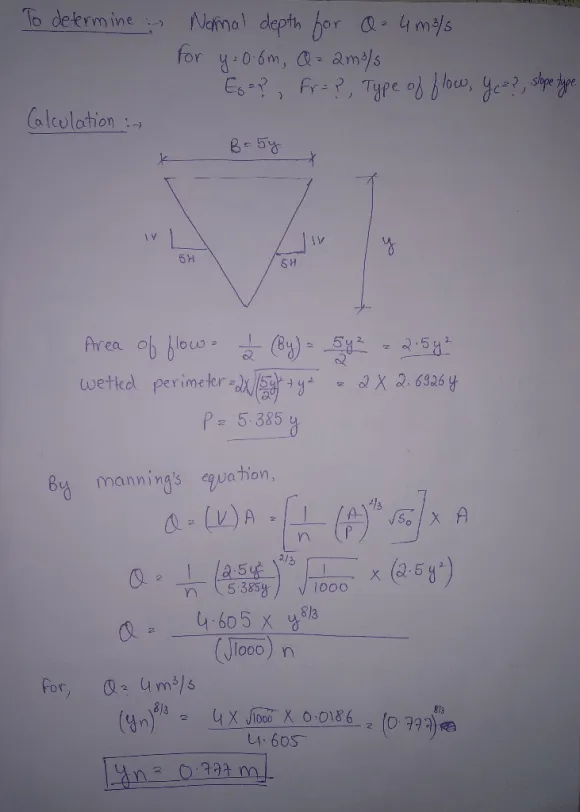 To determine :→ Normal depth for Q = 4 m³/s
for y = 0.6m, Q = 2m³/s
E₀ = ?, Fr = ?, Type of flow, yc = ?, slope type
Calculation :→
B = 5y
1V 1V
5H 5H
y
Area of flow = 1/2 (By) = 5y²/2 = 2.5y²
wetted perimeter = 2×√((5y/2)² + y²) = 2 × 2.6926 y
P = 5.385 y
By manning's equation,
Q = (V) A = [1/n (A/P)^2/3 √S₀] × A
Q = 1/n (2.5y²/5.385y)^2/3 √(1/1000) × (2.5y²)
Q = 4.605 × y^8/3 / (√1000) n
For, Q = 4 m³/s
(yn)^8/3 = 4 × √1000 × 0.0186 / 4.605 = (0.777)^8/3
yn = 0.777 m